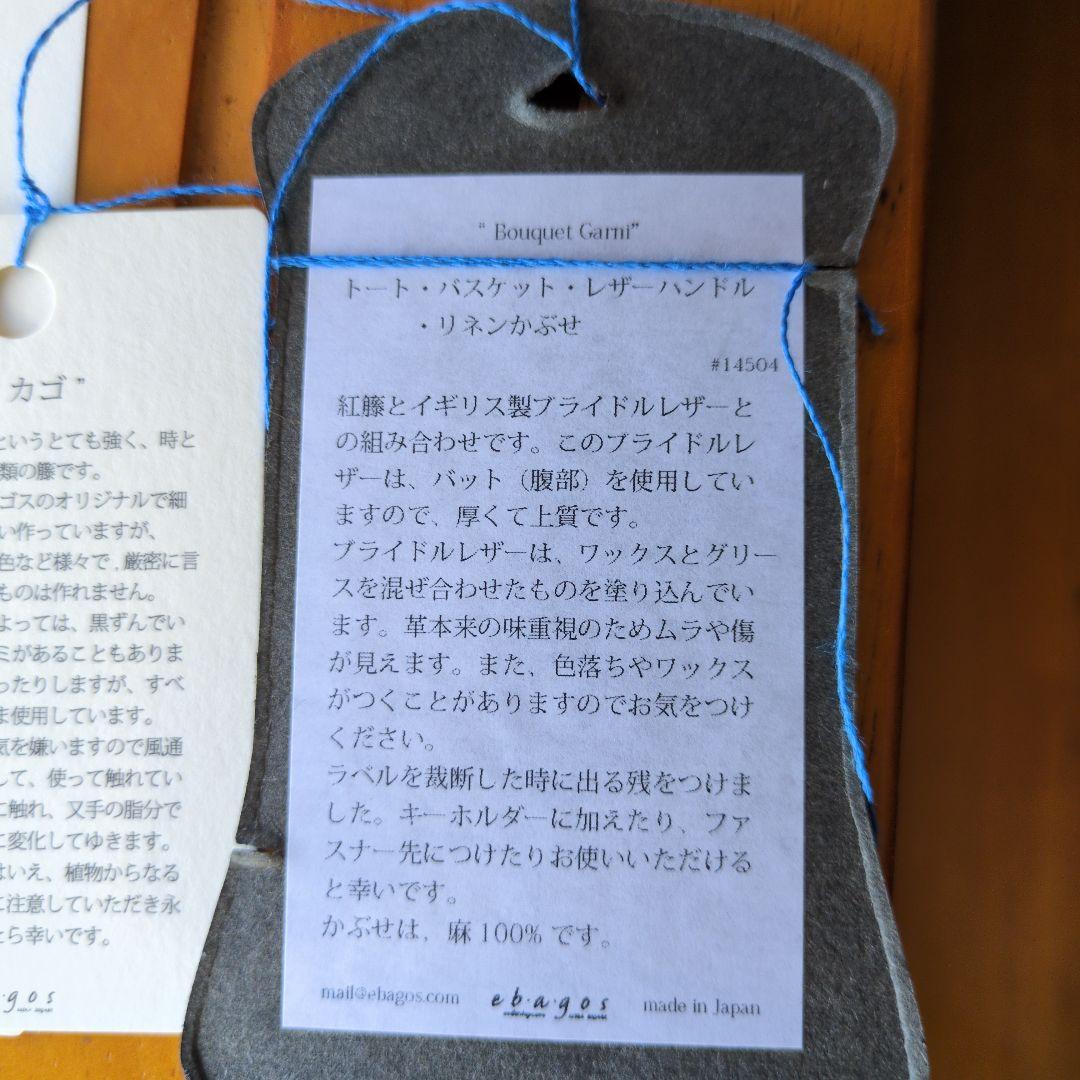 カゴ”
というとても強く、時と
類の籐です。
ゴスのオリジナルで細
い作っていますが、
色など様々で、厳密に言
ものは作れません。
よっては、黒ずんでい
ミがあることもありま
ったりしますが、すべ
ま使用しています。
気を嫌いますので風通
して、使って触れてい
に触れ、又手の脂分で
に変化してゆきます。
はいえ、植物からなる
に注意していただき永
たら幸いです。
a.g o s
“ Bouquet Garni”
トート・バスケット・レザーハンドル
・リネンかぶせ
#14504
紅籐とイギリス製ブライドルレザーと
の組み合わせです。このブライドルレ
ザーは、バット（腹部）を使用してい
ますので、厚くて上質です。
ブライドルレザーは、ワックスとグリー
スを混ぜ合わせたものを塗り込んでい
ます。革本来の味重視のためムラや傷
が見えます。また、色落ちやワックス
がつくことがありますのでお気をつけ
ください。
ラベルを裁断した時に出る残をつけま
した。キーホルダーに加えたり、ファ
スナー先につけたりお使いいただける
と幸いです。
かぶせは、麻 100% です。
mail@ebagos.com
e b . a . g o s
made in Japan